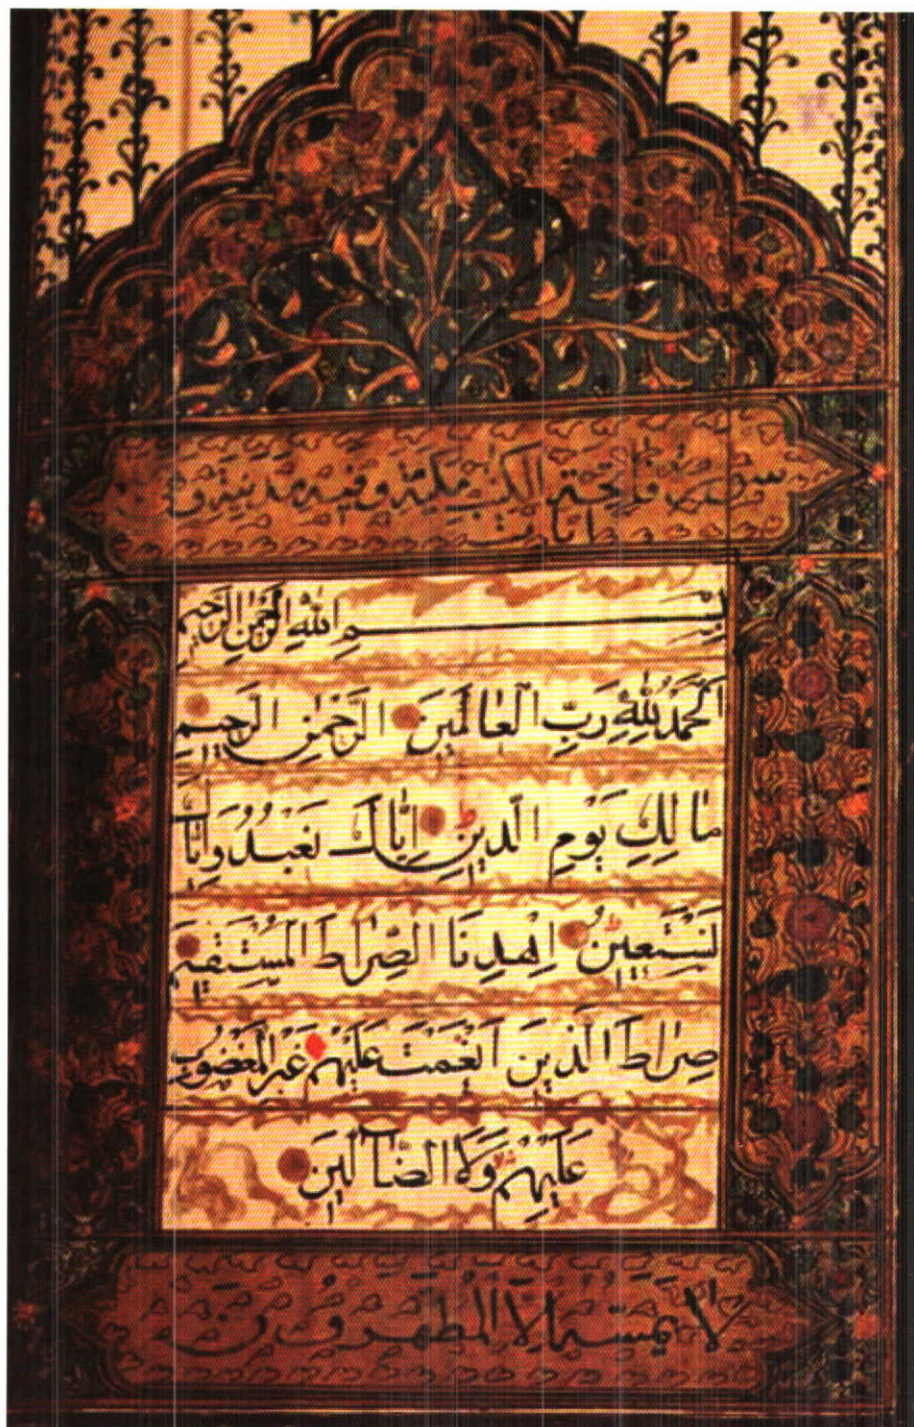 سورة فاتحة الكتب مكية وفيه مدنية
ايات
بِسْمِ اللهِ الرَّحْمٰنِ الرَّحِيمِ
اَلْحَمْدُ لِلّٰهِ رَبِّ الْعَالَمِينَ الرَّحْمٰنِ الرَّحِيمِ
مَالِكِ يَوْمِ الدِّينِ اِيَّاكَ نَعْبُدُ وَاِيَّاكَ
نَسْتَعِينُ اِهْدِنَا الصِّرَاطَ الْمُسْتَقِيمَ
صِرَاطَ الَّذِينَ اَنْعَمْتَ عَلَيْهِمْ غَيْرِ الْمَغْضُوبِ
عَلَيْهِمْ وَلَا الضَّآلِّينَ
لا يمسه الا المطهرون